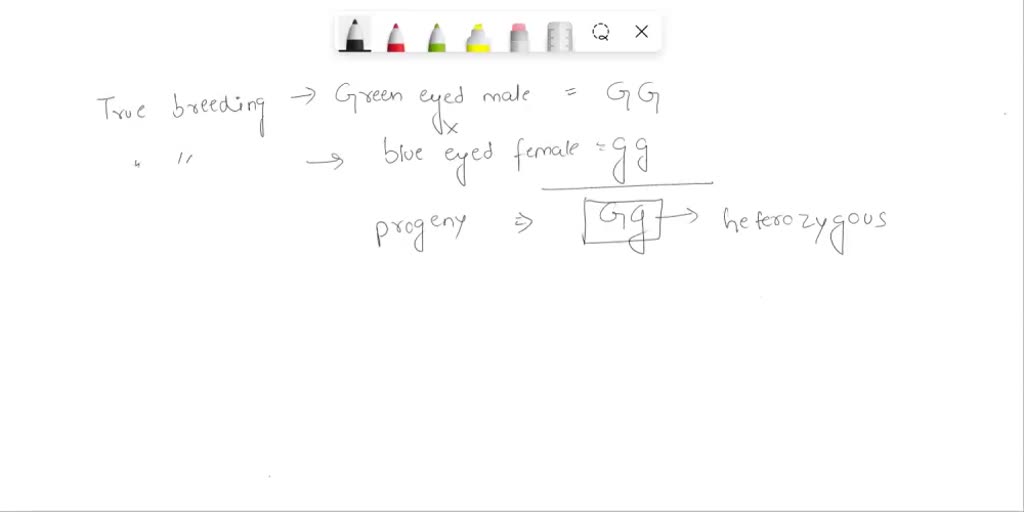 True breeding → Green eyed male = GG
x
" " → blue eyed female = gg
progeny ⇒ Gg → heterozygous